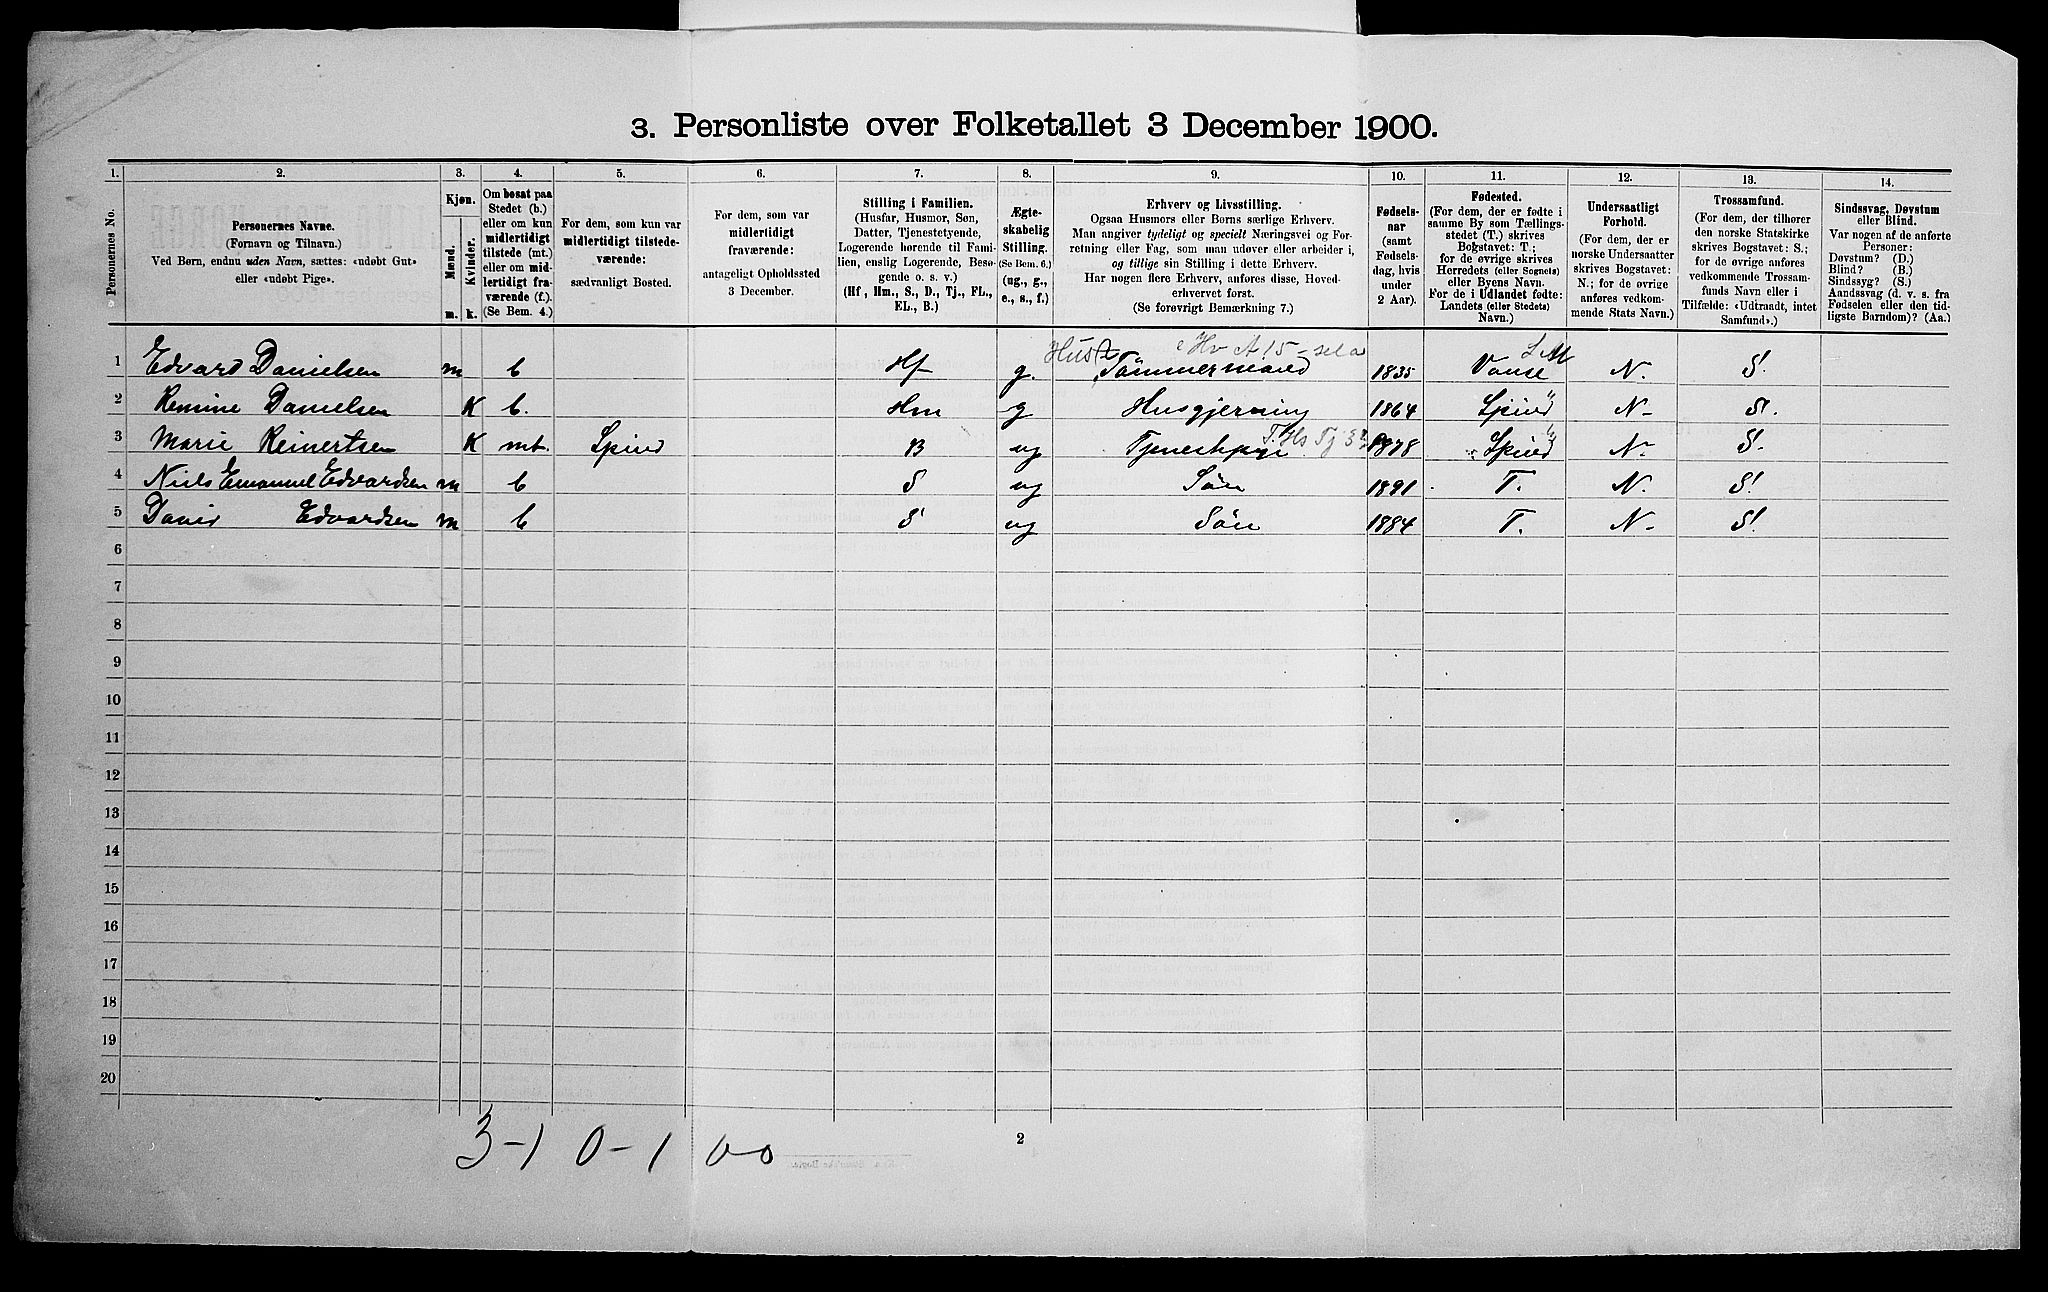 3. Personliste over Folketallet 3 December 1900.
1. 2. 3. 4. 5. 6. 7. 8. 9. 10. 11. 12. 13. 14.
Personernes No.
Personernes Navne.
(Fornavn og Tilnavn.)
Ved Børn, endnu uden Navn, sættes: «udøbt Gut»
eller «udøbt Pige».
Kjøn.
Mænd.
Kvinder.
m. k.
Om bosat paa
Stedet (b.)
eller om kun
midlertidigt
tilstede (mt.)
eller om mid-
lertidigt fra-
værende (f.).
(Se Bem. 4.)
For dem, som kun var
midlertidigt tilstede-
værende:
sædvanligt Bosted.
For dem, som var
midlertidigt
fraværende:
antageligt Opholdssted
3 December.
Stilling i Familien.
(Husfar, Husmor, Søn,
Datter, Tjenestetyende,
Logerende hørende til Fami-
lien, enslig Logerende, Besø-
gende o. s. v.)
(Hf., Hm., S., D., Tj., FL.,
EL., B.)
Ægte-
skabelig
Stilling.
(Se Bem. 6.)
(ug., g.,
e., s., f.)
Erhverv og Livsstilling.
Ogsaa Husmors eller Børns særlige Erhverv.
Man angiver tydeligt og specielt Næringsvei og For-
retning eller Fag, som man udøver eller arbeider i,
og tillige sin Stilling i dette Erhverv.
Har nogen flere Erhverv, anføres disse, Hoved-
erhvervet først.
(Se forøvrigt Bemærkning 7.)
Fødsels-
aar
(samt
Fødsels-
dag, hvis
under
2 Aar).
Fødested.
(For dem, der er fødte i
samme By som Tællings-
stedet (T.) skrives
Bogstavet: T.;
for de øvrige skrives
Herredets (eller Sognets)
eller Byens Navn.
For de i Udlandet fødte:
Landets (eller Stedets)
Navn.)
Undersaatligt
Forhold.
(For dem, der er
norske Undersaatter
skrives Bogstavet:
N.; for de øvrige
anføres vedkom-
mende Stats Navn.)
Trossamfund.
(For dem, der tilhører
den norske Statskirke
skrives Bogstav: S.;
for de øvrige anføres
vedkommende Trossam-
funds Navn eller i
Tilfælde: «Udtraadt, intet
Samfund».)
Sindssvag, Døvstum
eller Blind.
Var nogen af de anførte
Personer:
Døvstum? (D.)
Blind? (B.)
Sindssyg? (S.)
Aandssvag (d. v. s. fra
Fødselen eller den tid-
ligste Barndom)? (Aa.)
1 Edvard Danielsen m b Hf g. Tømmermand 1835 Vanse N. S.
2 Remine Danielsen K b. Hm g Husgjerning 1864 Spind N- S.
3 Marie Reinertsen K mt. Spind B ug 1878 Spind N- S.
4 Niels Emanuel Edvardsen m b S ug Søn 1891 T. N. S.
5 David Edvardsen m b S ug Søn 1884 T. N- S.
6
7
8
9
10
11
12
13
14
15
16
17
18
19
20
3-1 0-1 00
2